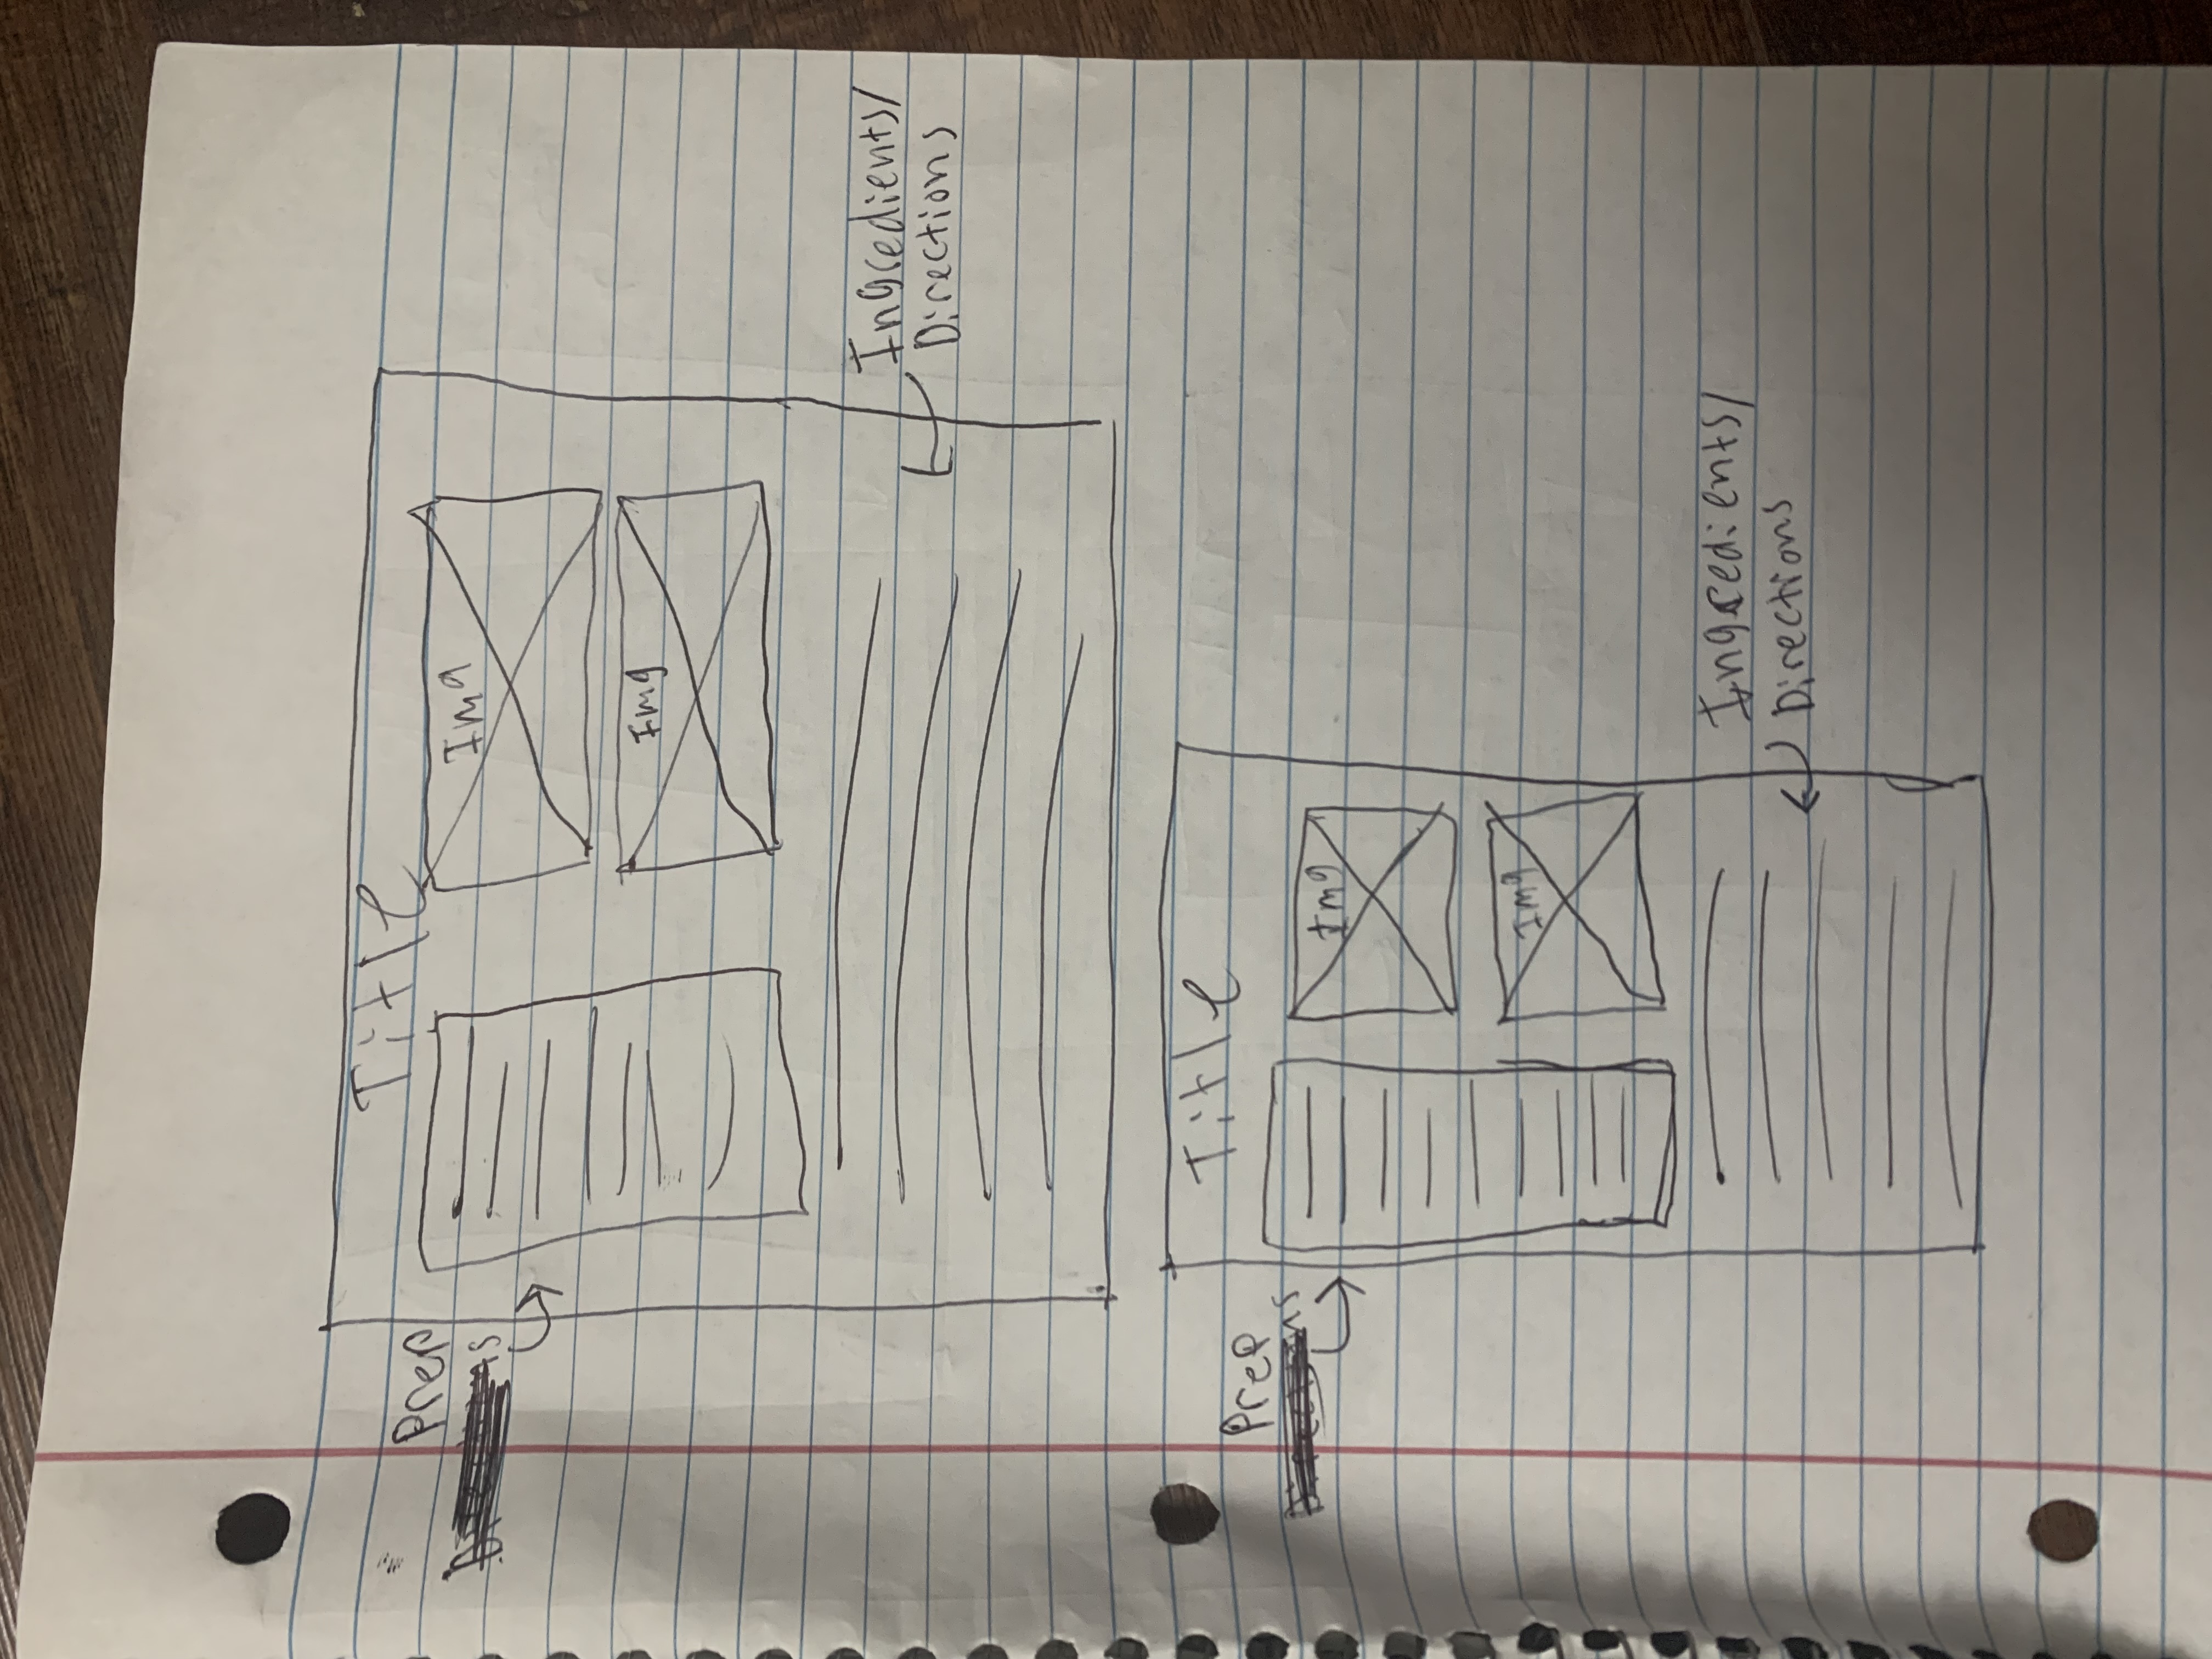 Title
Prep
Img
Img
Ingredients/
Directions
Title
Prep
Img
Img
Ingredients/
Directions